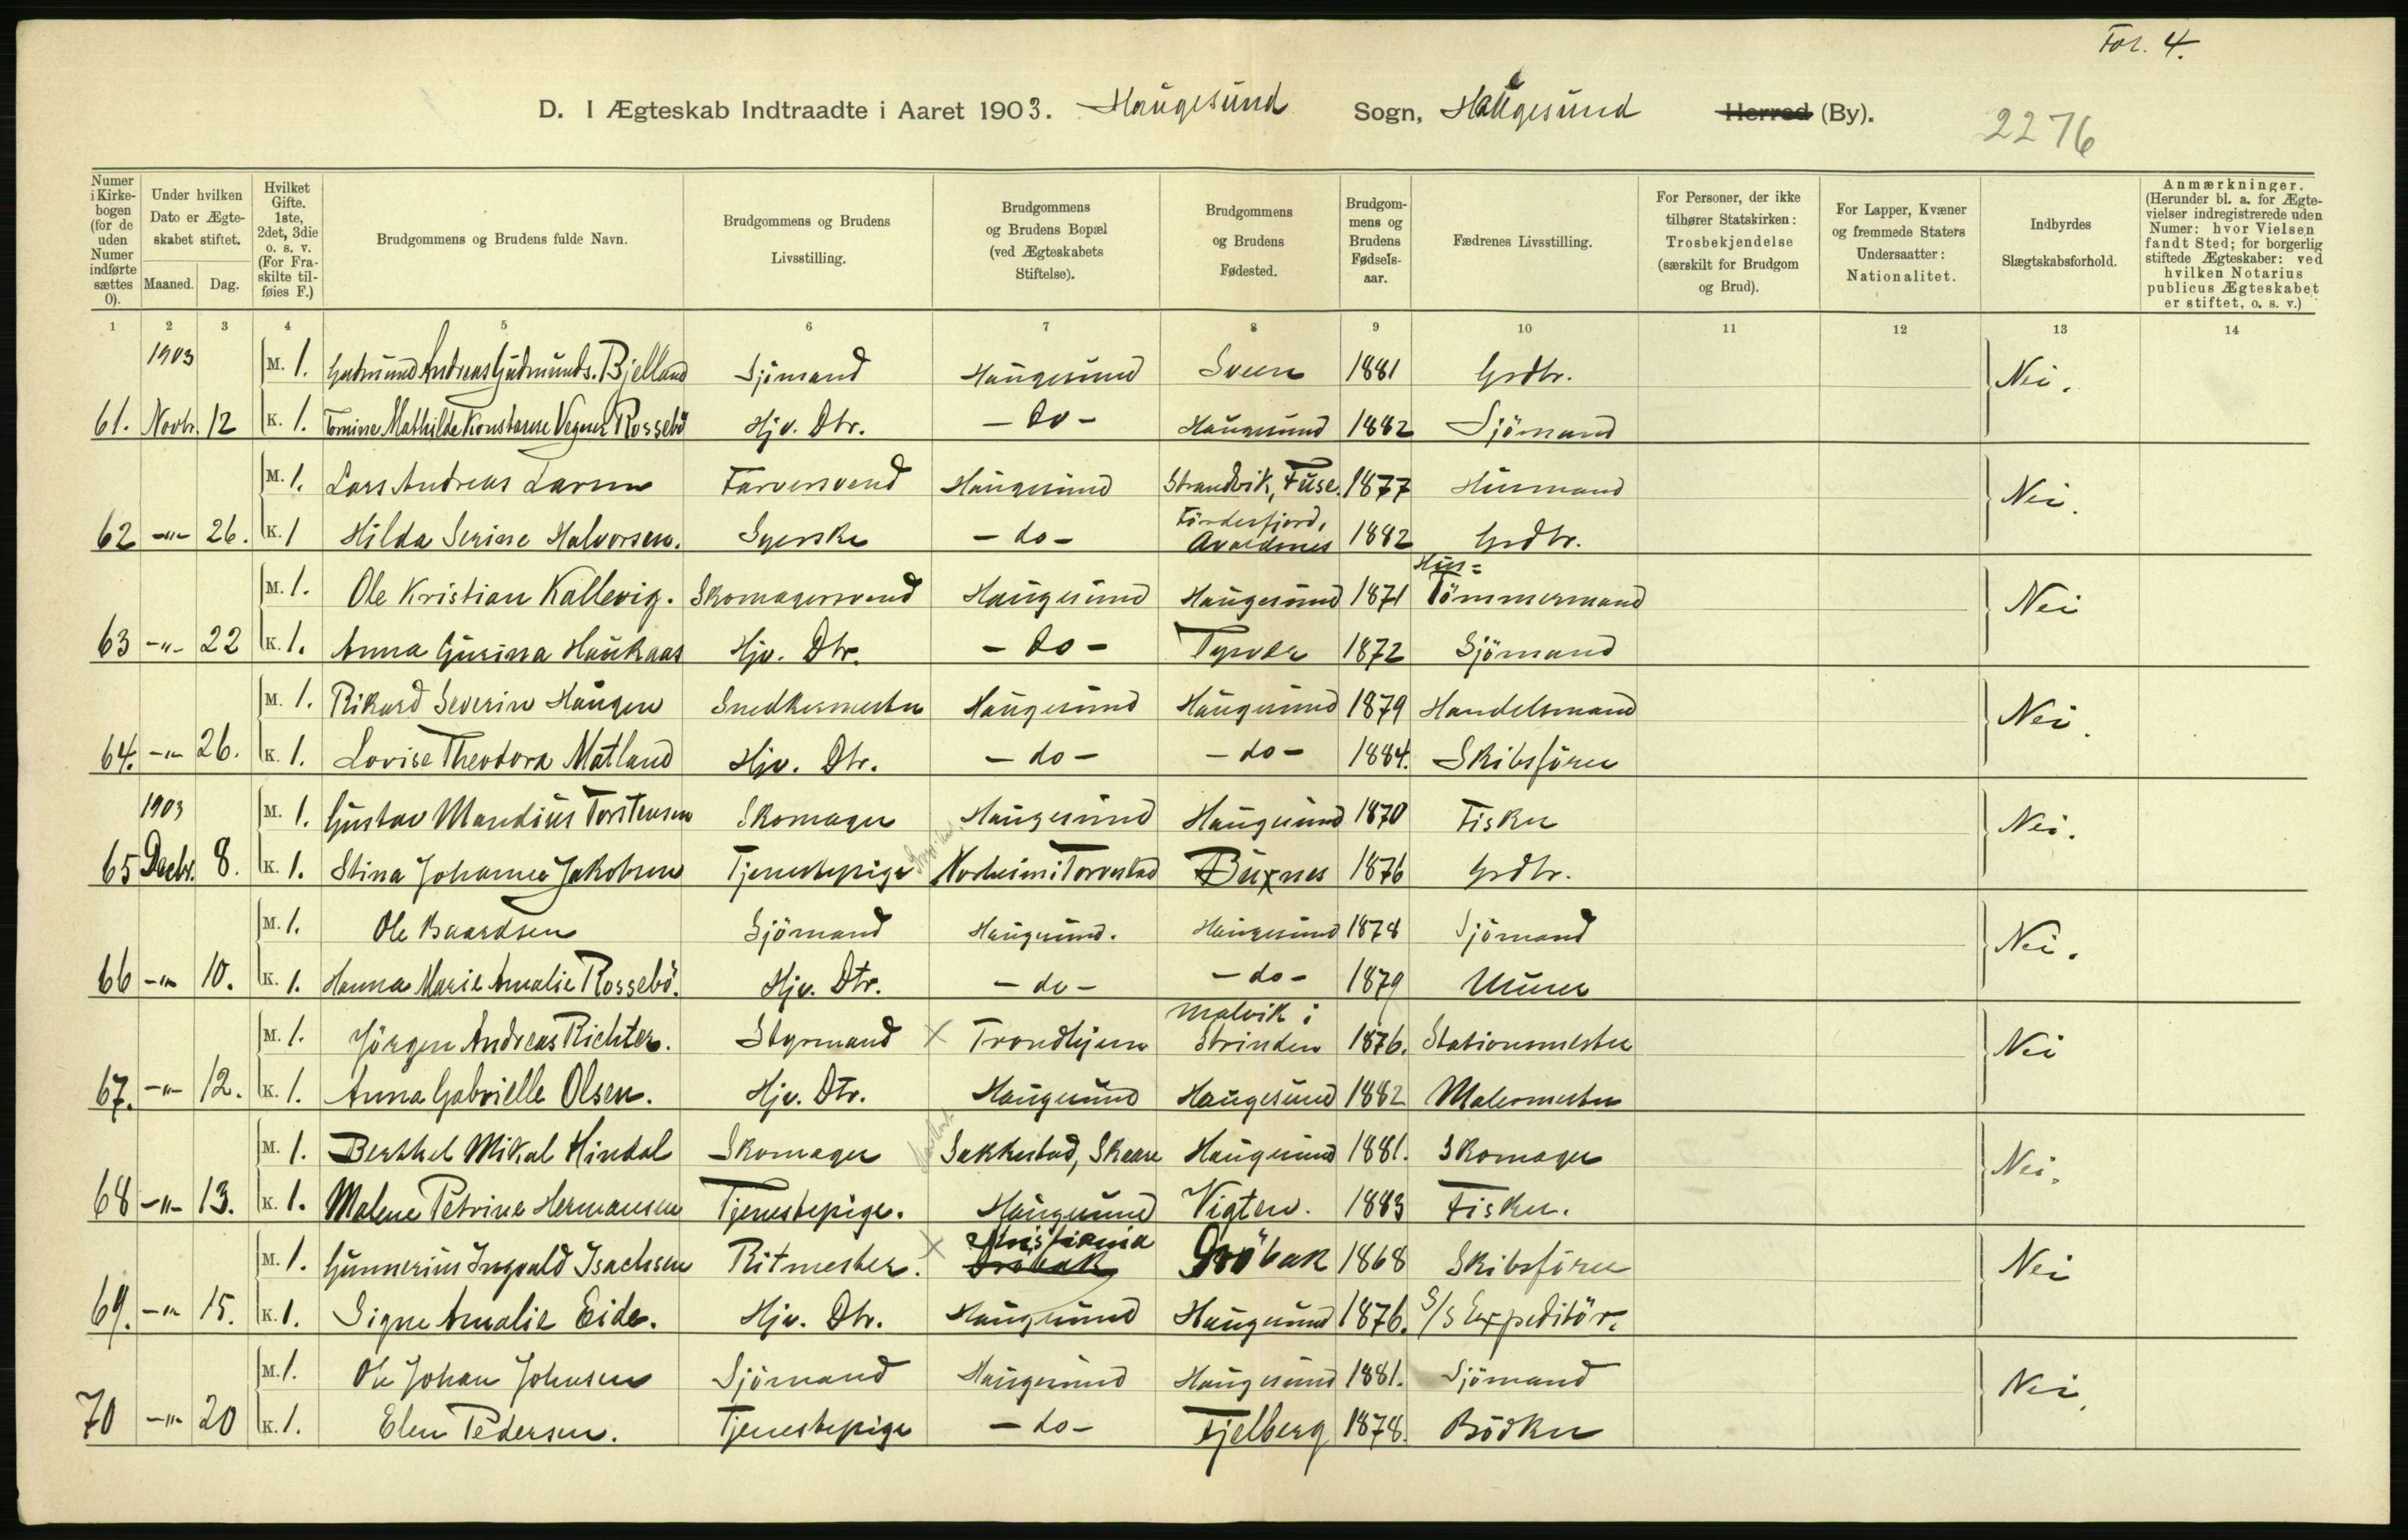 Fol. 4.
D. I Ægteskab Indtraadte i Aaret 1903. Haugesund Sogn, Haugesund Herred (By).
2276
Numer i Kirkebogen (for de uden Numer indførte sættes 0).
Under hvilken Dato er Ægteskabet stiftet.
Maaned. Dag.
Hvilket Gifte. 1ste, 2det, 3die o. s. v. (For Fraskilte tilføies F.)
Brudgommens og Brudens fulde Navn.
Brudgommens og Brudens Livsstilling.
Brudgommens og Brudens Bopæl (ved Ægteskabets Stiftelse).
Brudgommens og Brudens Fødested.
Brudgommens og Brudens Fødselsaar.
Fædrenes Livsstilling.
For Personer, der ikke tilhører Statskirken: Trosbekjendelse (særskilt for Brudgom og Brud).
For Lapper, Kvæner og fremmede Staters Undersaatter: Nationalitet.
Indbyrdes Slægtskabsforhold.
Anmærkninger. (Herunder bl. a. for Ægtevielser indregistrerede uden Numer: hvor Vielsen fandt Sted; for borgerlig stiftede Ægteskaber: ved hvilken Notarius publicus Ægteskabet er stiftet, o. s. v.)
1 2 3 4 5 6 7 8 9 10 11 12 13 14
1903 M. 1. Gudmund Andreas Gudmunds. Bjelland Sjömand Haugesund Sveen 1881 Grdbr. Nei.
61. Novbr. 12 K. 1. Tomine Mathilde Konstanse Vegner Rossebö Hjv. Dtr. - do - Haugesund 1882 Sjömand
M. 1. Lars Andreas Larsen Farversvend Haugesund Strandvik, Fuse. 1877 Husmand Nei.
62 -"- 26. K. 1 Hilda Serine Halvorsen. Syerske - do - Fördesfjord, Avaldsnes 1882 Grdbr.
M. 1. Ole Kristian Kallevig. Skomagersvend Haugesund Haugesund 1871 Hus= Tömmermand Nei
63 -"- 22 K. 1. Anna Gurina Haukaas Hjv. Dtr. - do - Tysvær 1872 Sjömand
M. 1. Rikard Severin Haugen Snedkermester Haugesund Haugesund 1879 Handelsmand Nei.
64. -"- 26. K. 1. Lovise Theodora Matland Hjv. Dtr. - do - - do - 1884. Skibsförer
1903 M. 1. Gustav Mandius Torstensen Skomager Haugesund Haugesund 1870 Fisker Nei.
65 Decbr. 8. K. 1. Stina Johanna Jakobsen Tjenestepige Norheim i Torvestad Buxnes 1876 Grdbr.
M. 1. Ole Baardsen Sjömand Haugesund. Haugesund 1878 Sjömand Nei.
66 -"- 10. K. 1. Hanna Marie Amalie Rossebö. Hjv. Dtr. - do - - do - 1879 Murer
M. 1. Jörgen Andreas Richter. Styrmand X Trondhjem Malvik i Strinden 1876. Stationsmester Nei
67. -"- 12. K. 1. Anna Gabrielle Olsen. Hjv. Dtr. Haugesund Haugesund 1882 Malermester
M. 1. Berthel Mikal Hindal Skomager Sakkestad, Skaare Haugesund 1881. Skomager Nei.
68 -"- 13. K. 1. Malene Petrine Hermansen Tjenestepige. Haugesund Vigten. 1883 Fisker.
M. 1. Gunnerius Ingvald Isachsen Ritmester. X Kristiania Dröbak Dröbak 1868 Skibsförer Nei
69. -"- 15. K. 1. Signe Amalie Eide. Hjv. Dtr. Haugesund Haugesund 1876. S/S Expeditör.
M. 1. Ole Johan Johnsen Sjömand Haugesund Haugesund 1881. Sjömand Nei.
70 -"- 20 K. 1. Elen Pedersen. Tjenestepige - do - Fjelberg 1878. Bödker